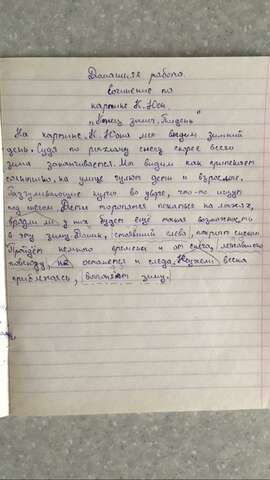 Домашняя работа.
Сочинение по
картине К. Юон.
"Конец зимы. Полдень"
На картине К. Юона мы видим зимний
день. Судя по рыхлому снегу скорее всего
зима заканчивается. Мы видим как припекает
солнышко, на улице гуляют дети и взрослые.
Разгуливающие курицы во дворе, что-то ищут
под снегом. Дети торопятся покататься на лыжах,
врядли у них будет ещё такая возможность
в эту зиму. Домик, стоявший слева, покрыт снегом.
Пройдёт немного времени и от снега, лежавшего
повсюду, не останется и следа. весна
приближаясь, зиму.